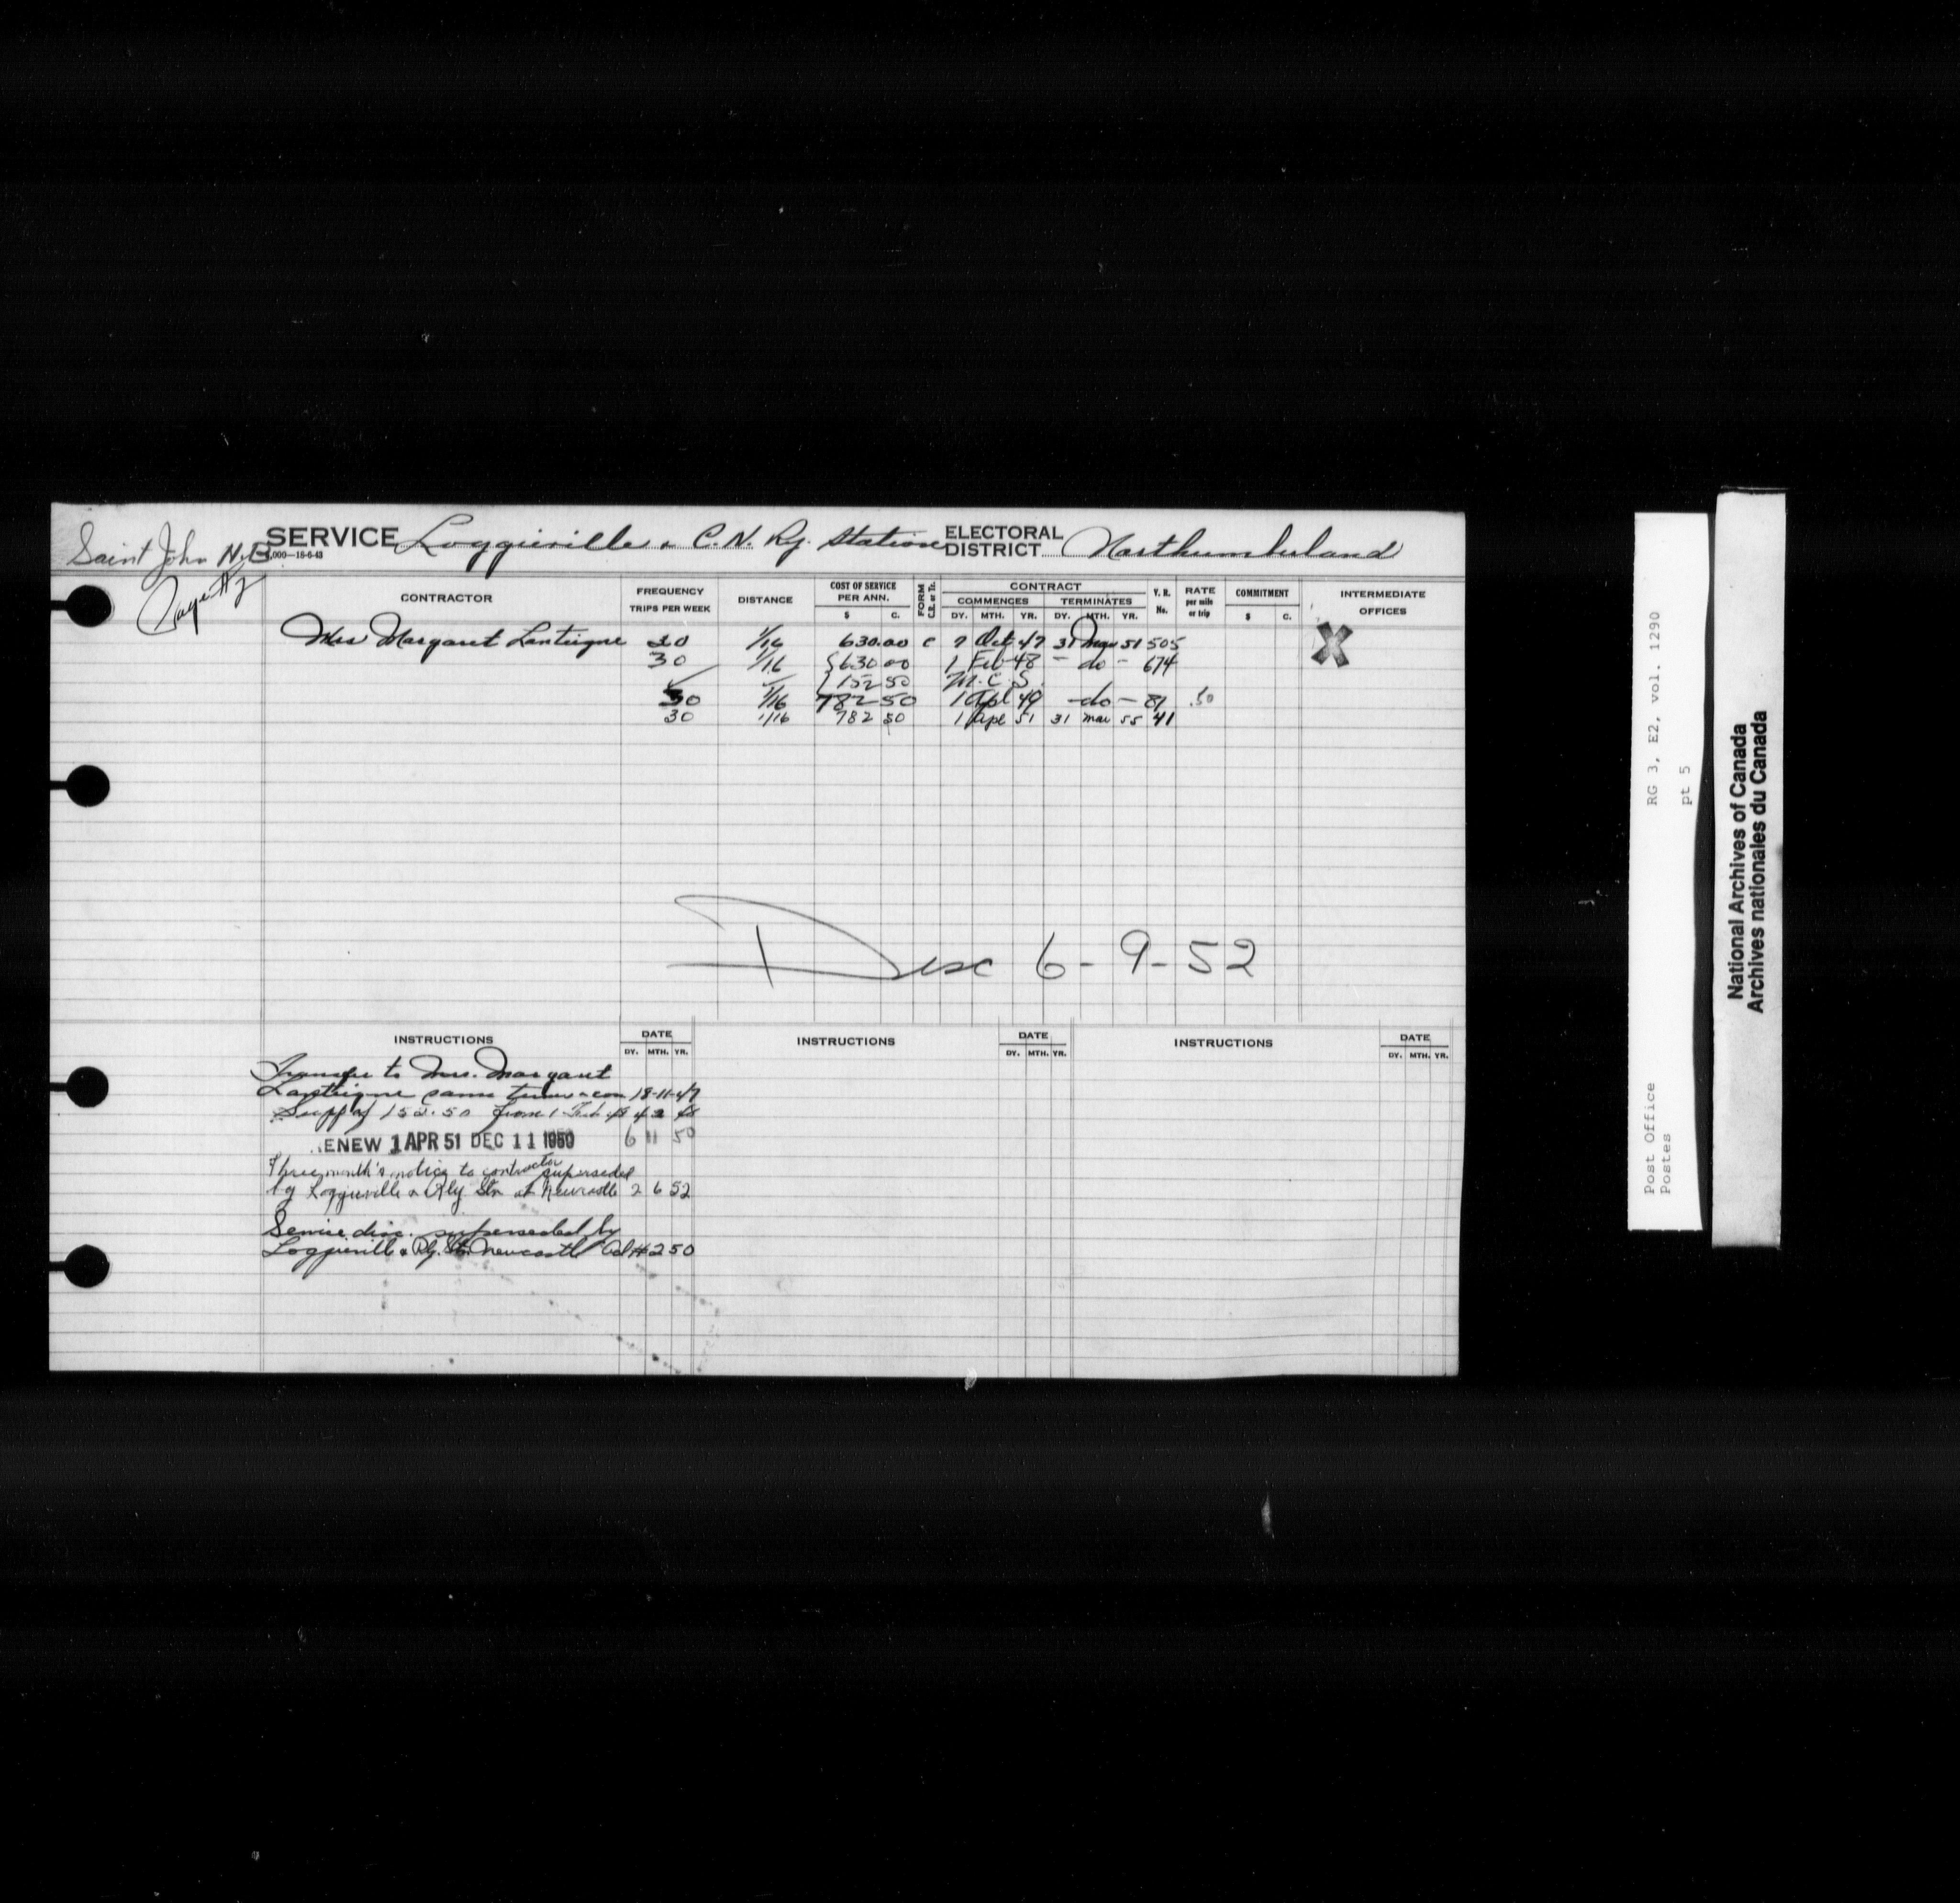 Saint John N.B. SERVICE Loggieville & C.N. Ry. Station ELECTORAL DISTRICT Northumberland
,000—18-6-43
Page #2
CONTRACTOR FREQUENCY TRIPS PER WEEK DISTANCE COST OF SERVICE PER ANN. $ C. FORM C.R. or Tr. CONTRACT COMMENCES DY. MTH. YR. TERMINATES DY. MTH. YR. Y.R. No. RATE per mile or trip COMMITMENT $ C. INTERMEDIATE OFFICES
Mrs Margaret Lanteigne 30 1/16 630.00 C 7 Oct 47 31 Mar 51 505 X
30 1/16 {630 00 1 Feb 48 - do - 674
152 50 M.C.S.
30 1/16 782 50 1 Apl 49 - do - 81 .50
30 1/16 782 50 1 Apl 51 31 Mar 55 41
Disc 6-9-52
INSTRUCTIONS DATE DY. MTH. YR. INSTRUCTIONS DATE DY. MTH. YR. INSTRUCTIONS DATE DY. MTH. YR.
Transfer to Mrs. Margaret
Lanteigne same terms & con 18-11-47
Supp of 152.50 from 1 Feb 48 4 2 48
RENEW 1 APR 51 DEC 11 1950 6 11 50
Three month's notice to contractor superseded
by Loggieville & Rly Stn at Newcastle 2 6 52
Service disc. superseded by
Loggieville & Rly. Stn. Newcastle #250
RG 3, E2, vol. 1290
pt 5
Post Office
Postes
National Archives of Canada
Archives nationales du Canada